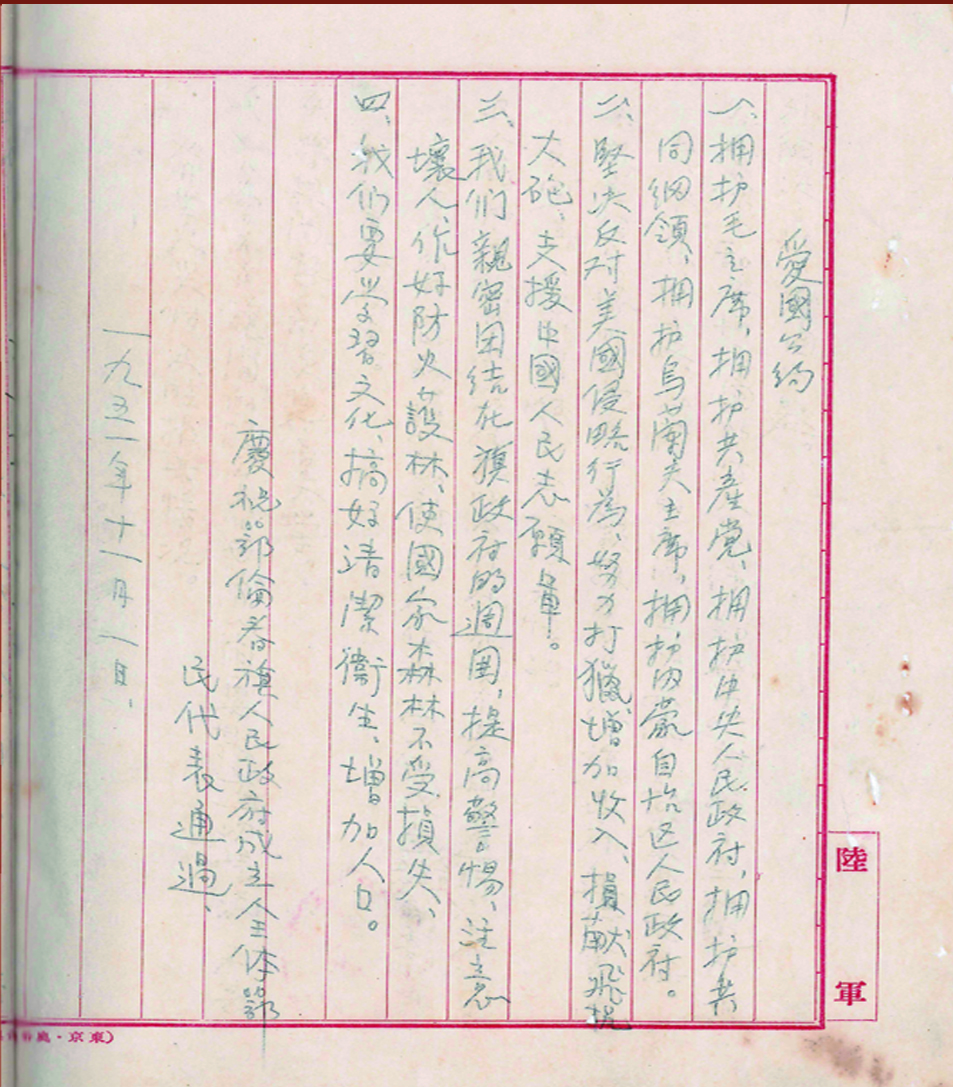 愛國公约
一、拥护毛主席，拥护共產党、拥护中央人民政府，拥护共
同綱領、拥护烏蘭夫主席，拥护内蒙自治区人民政府。
二、堅决反对美國侵略行為、努力打獵增加收入、損献飛机
大砲、支援中國人民志願軍。
三、我们親密团结在旗政府的週围，提高警惕、注意
壞人作好防火護林、使國家森林不受損失、
四、我们要学習文化、搞好清潔衞生、增加人口。
慶祝鄂倫春旗人民政府成立全体鄂
民代表通過、
一九五一年十一月一日、
陸軍
(東京・